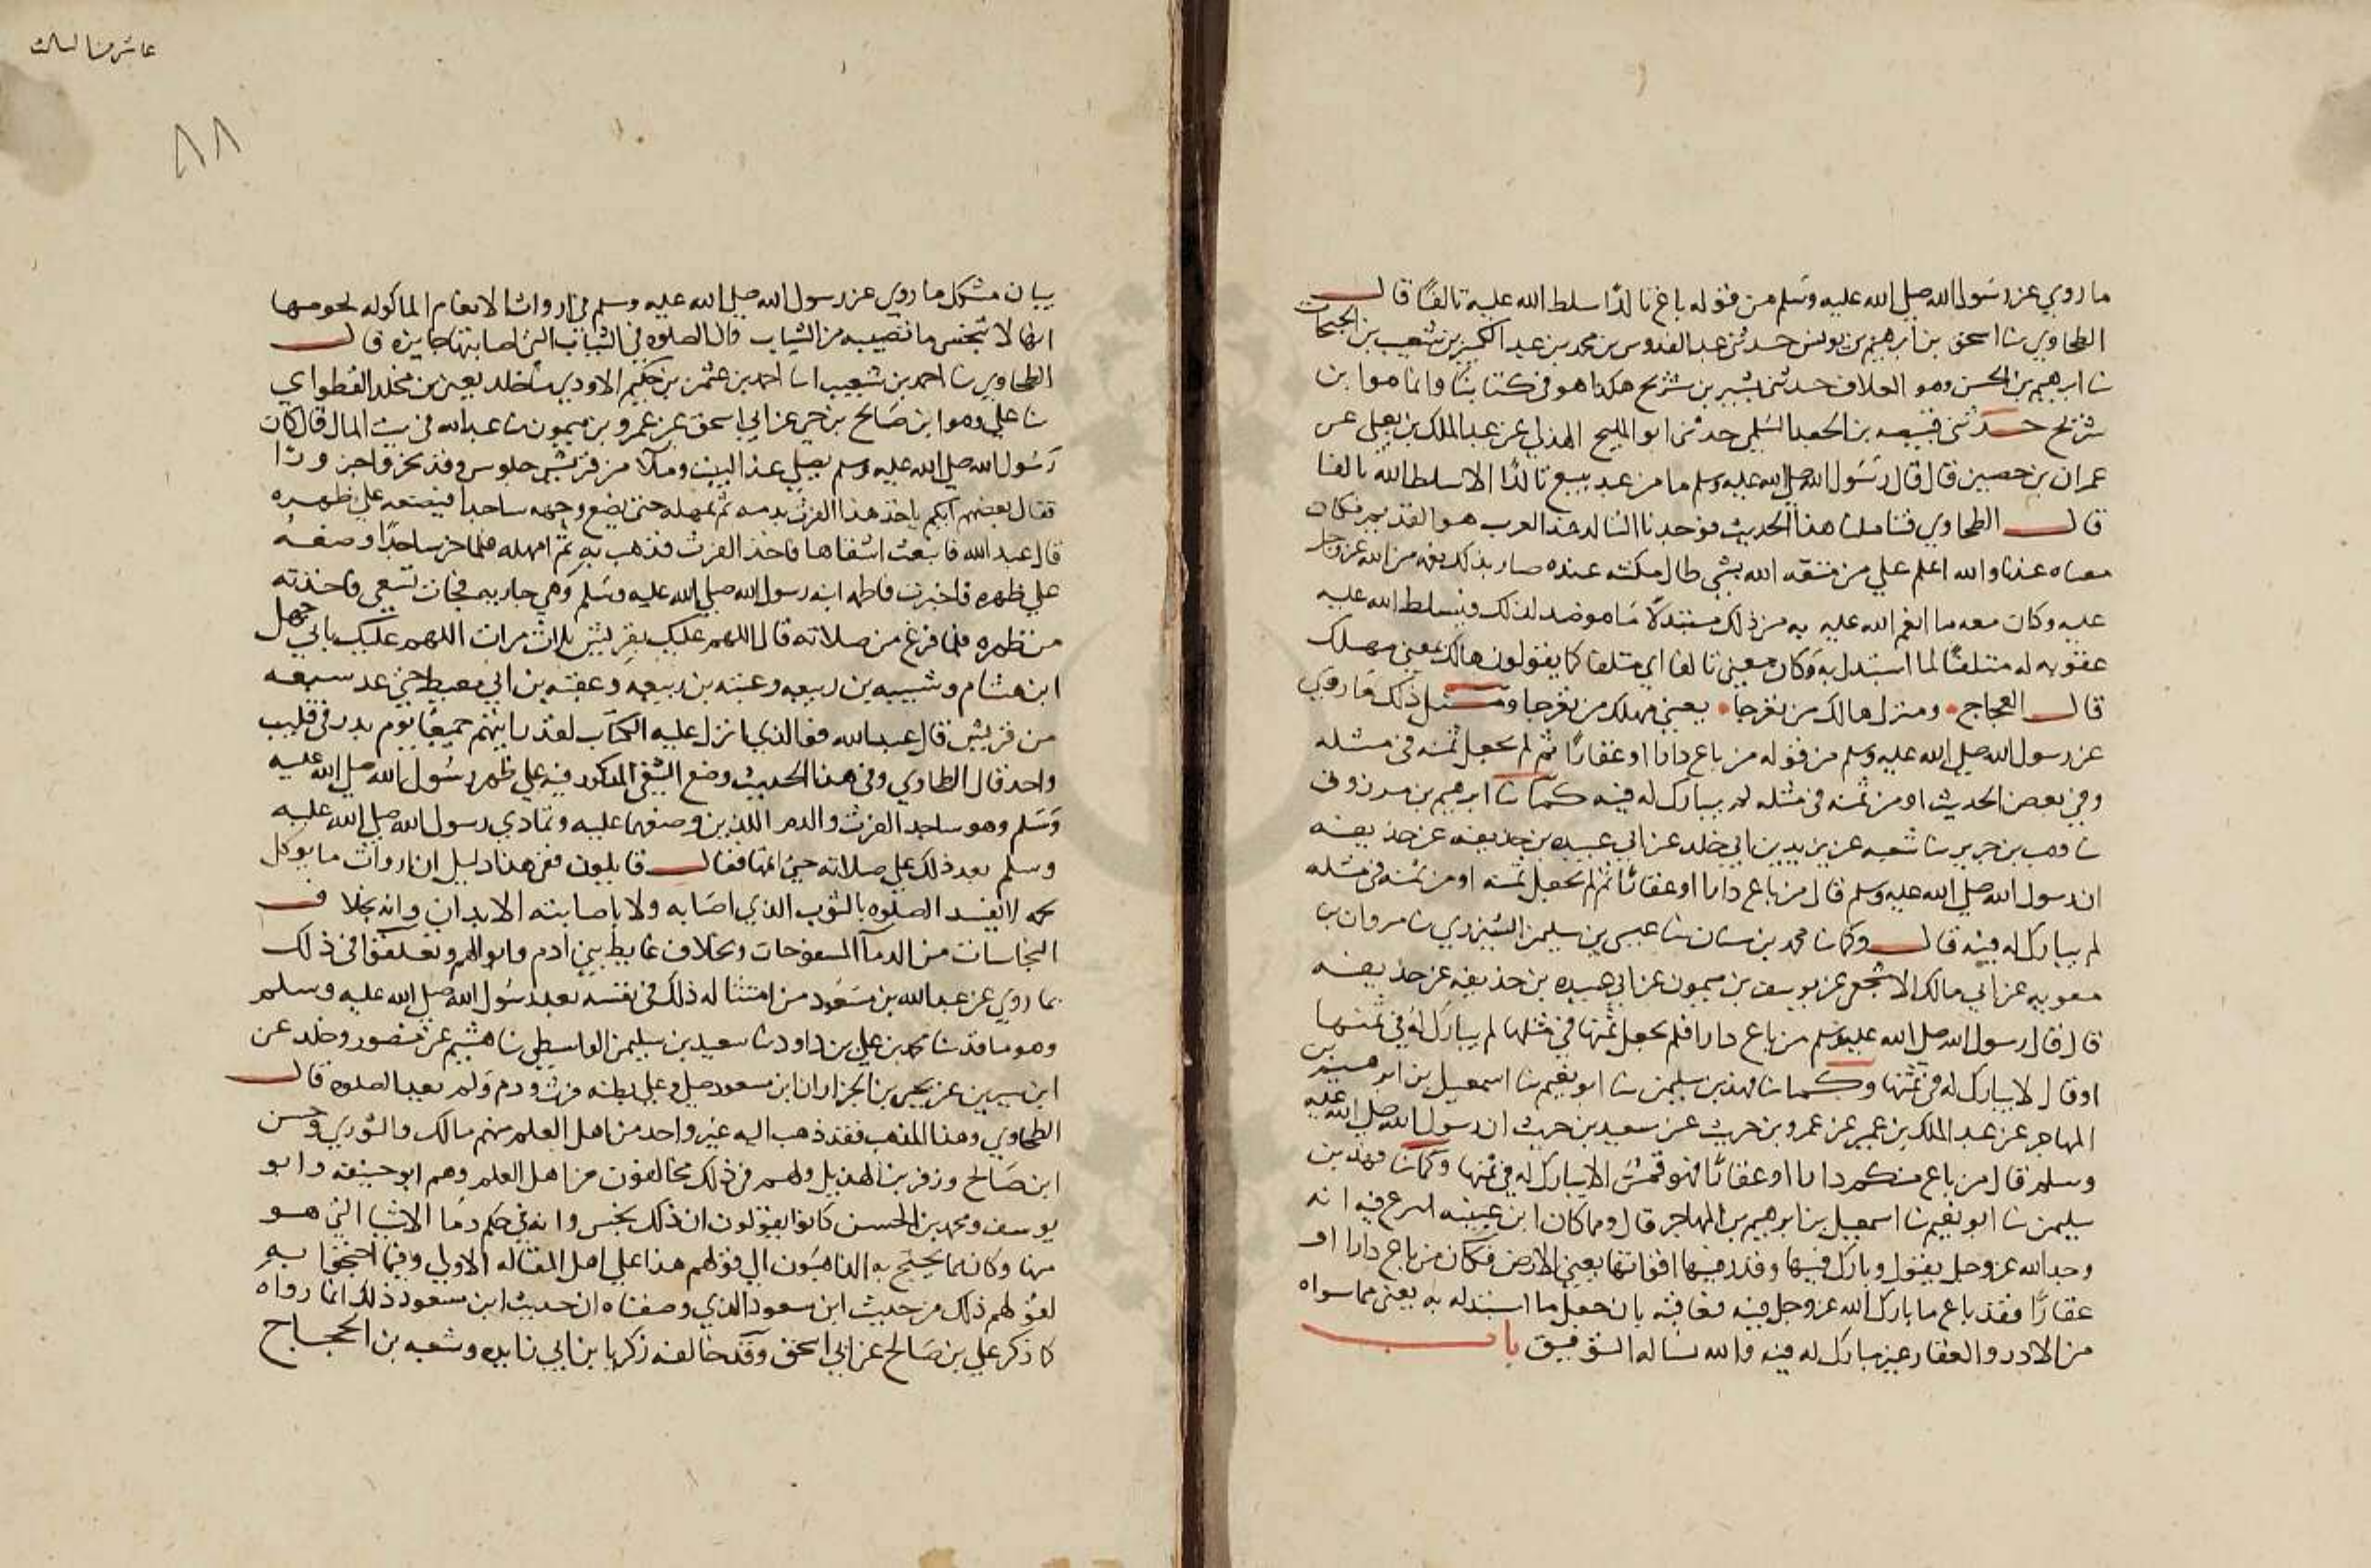 ما روي عن رسول الله صلى الله عليه وسلم من قوله من باع تالدًا سلط الله عليه تالفًا قال
الطحاوي نا اسحق بن ابرهيم بن يونس حدثني عبد القدوس بن محمد بن عبد الكبير بن شعيب بن الحبحاب
نا ابرهيم بن الحسن وهو العلاف حدثني بشير بن شريح هكذا هو في كتابنا وانما هو ابن
شريح حدثني قبيصه بن الجعد السلمي حدثني ابو المليح الهذلي عن عبد الملك بن يعلي عن
عمران بن حصين قال قال رسول الله صلى الله عليه وسلم ما من عبد يبيع تالدًا الا سلط الله تالفا
قال الطحاوي فتاملنا هذا الحديث فوجدنا التالد عند العرب هو القديم فكان
معناه عندنا والله اعلم علي من متعه الله بشي طال مكثه عنده صار بذلك نعمه من الله عز وجل
عليه وكان معه ما انعم الله عليه به من ذلك مستبدلًا ما هو ضد لذلك فيسلط الله عليه
عقوبه له متلفًا لما استبدل به وكان معني تالفا اي متلفا كما يقولون هالك بمعني مهلك
قال العجاج ومنزل هالك من تعرجا يعني مهلك من تعرجا ومثل ذلك ما روي
عن رسول الله صلى الله عليه وسلم من قوله من باع دارا او عقارًا ثم لم يجعل ثمنه في مثله
وفي بعض الحديث او من ثمنه في مثله لم يبارك له فيه كما نا ابرهيم بن مرزوق
نا وهب بن جرير نا شعبه عن يزيد بن ابي خلد عن ابي عبيده بن حذيفه عن حذيفه
ان رسول الله صلى الله عليه وسلم قال من باع دارا او عقارًا ثم لم يجعل ثمنه او من ثمنه في مثله
لم يبارك له فيه قال وكما نا محمد بن سنان نا عيسي بن سليمن الشيزري نا مروان بن
معويه عن ابي مالك الاشجعي عن يوسف بن ميمون عن ابي عبيده بن حذيفه عن حذيفه
قال قال رسول الله صلى الله عليه وسلم من باع دارا فلم يجعل ثمنها في مثلها لم يبارك له في ثمنها
او قال لا يبارك له في ثمنها وكما نا فهد بن سليمن نا ابو نعيم نا اسمعيل بن ابرهيم بن
المهاجر عن عبد الملك بن عمير عن عمرو بن حريث عن سعيد بن حريث ان رسول الله صلى الله عليه
وسلم قال من باع منكم دارا او عقارًا فهو قمن الا يبارك له في ثمنها وكما نا فهد بن
سليمن نا ابو نعيم نا اسمعيل بن ابرهيم بن المهاجر قال ومما كان ابن عيينه فيه انه
وجد الله عز وجل يقول وبارك فيها وقدر فيها اقواتها يعني الارض فكان من باع دارا او
عقارًا فقد باع ما بارك الله عز وجل فيه فعاقبه بان جعل ما استبدله به يعني مما سواه
من الادر والعقار غير مبارك له فيه والله نساله التوفيق باب
عاشر من
٨٨
بيان مشكل ما روي عن رسول الله صلى الله عليه وسلم في ارواث الانعام الماكوله لحومها
انها لا تنجس ما تصيبه من الثياب وان الصلوه في الثياب التي اصابتها جايزه قال
الطحاوي نا احمد بن شعيب انا احمد بن عثمن بن حكيم الاودي نا خلد يعني بن مخلد القطواني
نا علي وهو ابن صالح بن حي عن ابي اسحق عن عمرو بن ميمون نا عبد الله في بيت المال قال كان
رسول الله صلى الله عليه وسلم يصلي عند البيت وملا من قريش جلوس وقد نحروا جزورًا
فقال بعضهم ايكم ياخذ هذا الفرث بدمه ثم يمهله حتي يضع وجهه ساجدا فيضعه علي ظهره
قال عبد الله فانبعث اشقاها فاخذ الفرث فذهب به ثم امهله فلما خر ساجدًا وضعه
علي ظهره فاخبرت فاطمه ابنه رسول الله صلى الله عليه وسلم وهي جاريه فجات تسعي فاخذته
من ظهره فلما فرغ من صلاته قال اللهم عليك بقريش ثلاث مرات اللهم عليك بابي جهل
ابن هشام وشيبه بن ربيعه وعتبه بن ربيعه وعقبه بن ابي معيط حتي عد سبعه
من قريش قال عبد الله فوالذي انزل عليه الكتاب لقد رايتهم جميعًا يوم بدر في قليب
واحد قال الطحاوي وفي هذا الحديث وضع الشقي المذكور فيه علي ظهر رسول الله صلى الله عليه
وسلم وهو ساجد الفرث والدم اللذين وضعهما عليه وتمادي رسول الله صلى الله عليه
وسلم بعد ذلك علي صلاته حتي اتمها فقال قايلون ففي هذا دليل ان ارواث ما يوكل
لحمه لا يفسد الصلوه بالثوب الذي اصابه ولا باصابته الابدان وانه بخلاف
النجاسات من الدمآ المسفوحات وبخلاف غايط بني ادم وابوالهم وتعلقوا في ذلك
بما روي عن عبد الله بن مسعود من امتثاله ذلك في نفسه بعد رسول الله صلى الله عليه وسلم
وهو ما قد نا محمد بن علي بن داود نا سعيد بن سليمن الواسطي نا هشيم عن منصور وخلد عن
ابن سيرين عن يحيي بن الجزار ان ابن مسعود صلي وعلي بطنه فرث ودم ولم يعيد الصلوه قال
الطحاوي وهذا المذهب فقد ذهب اليه غير واحد من اهل العلم منهم مالك والثوري وحسن
ابن صالح وزفر بن الهذيل ولهم في ذلك مخالفون من اهل العلم وهم ابو حنيفه وابو
يوسف ومحمد بن الحسن كانوا يقولون ان ذلك نجس وانه في حكم دما الاشيا التي هو
منها وكان مما يحتج به الذاهبون الي قولهم هذا علي اهل المقاله الاولي وفيما احتجوا به
لقولهم ذلك من حديث ابن مسعود الذي وصفناه ان حديث ابن مسعود ذلك انما رواه
كما ذكر علي بن صالح عن ابي اسحق وقد خالفه زكريا بن ابي زايده وشعبه بن الحجاج